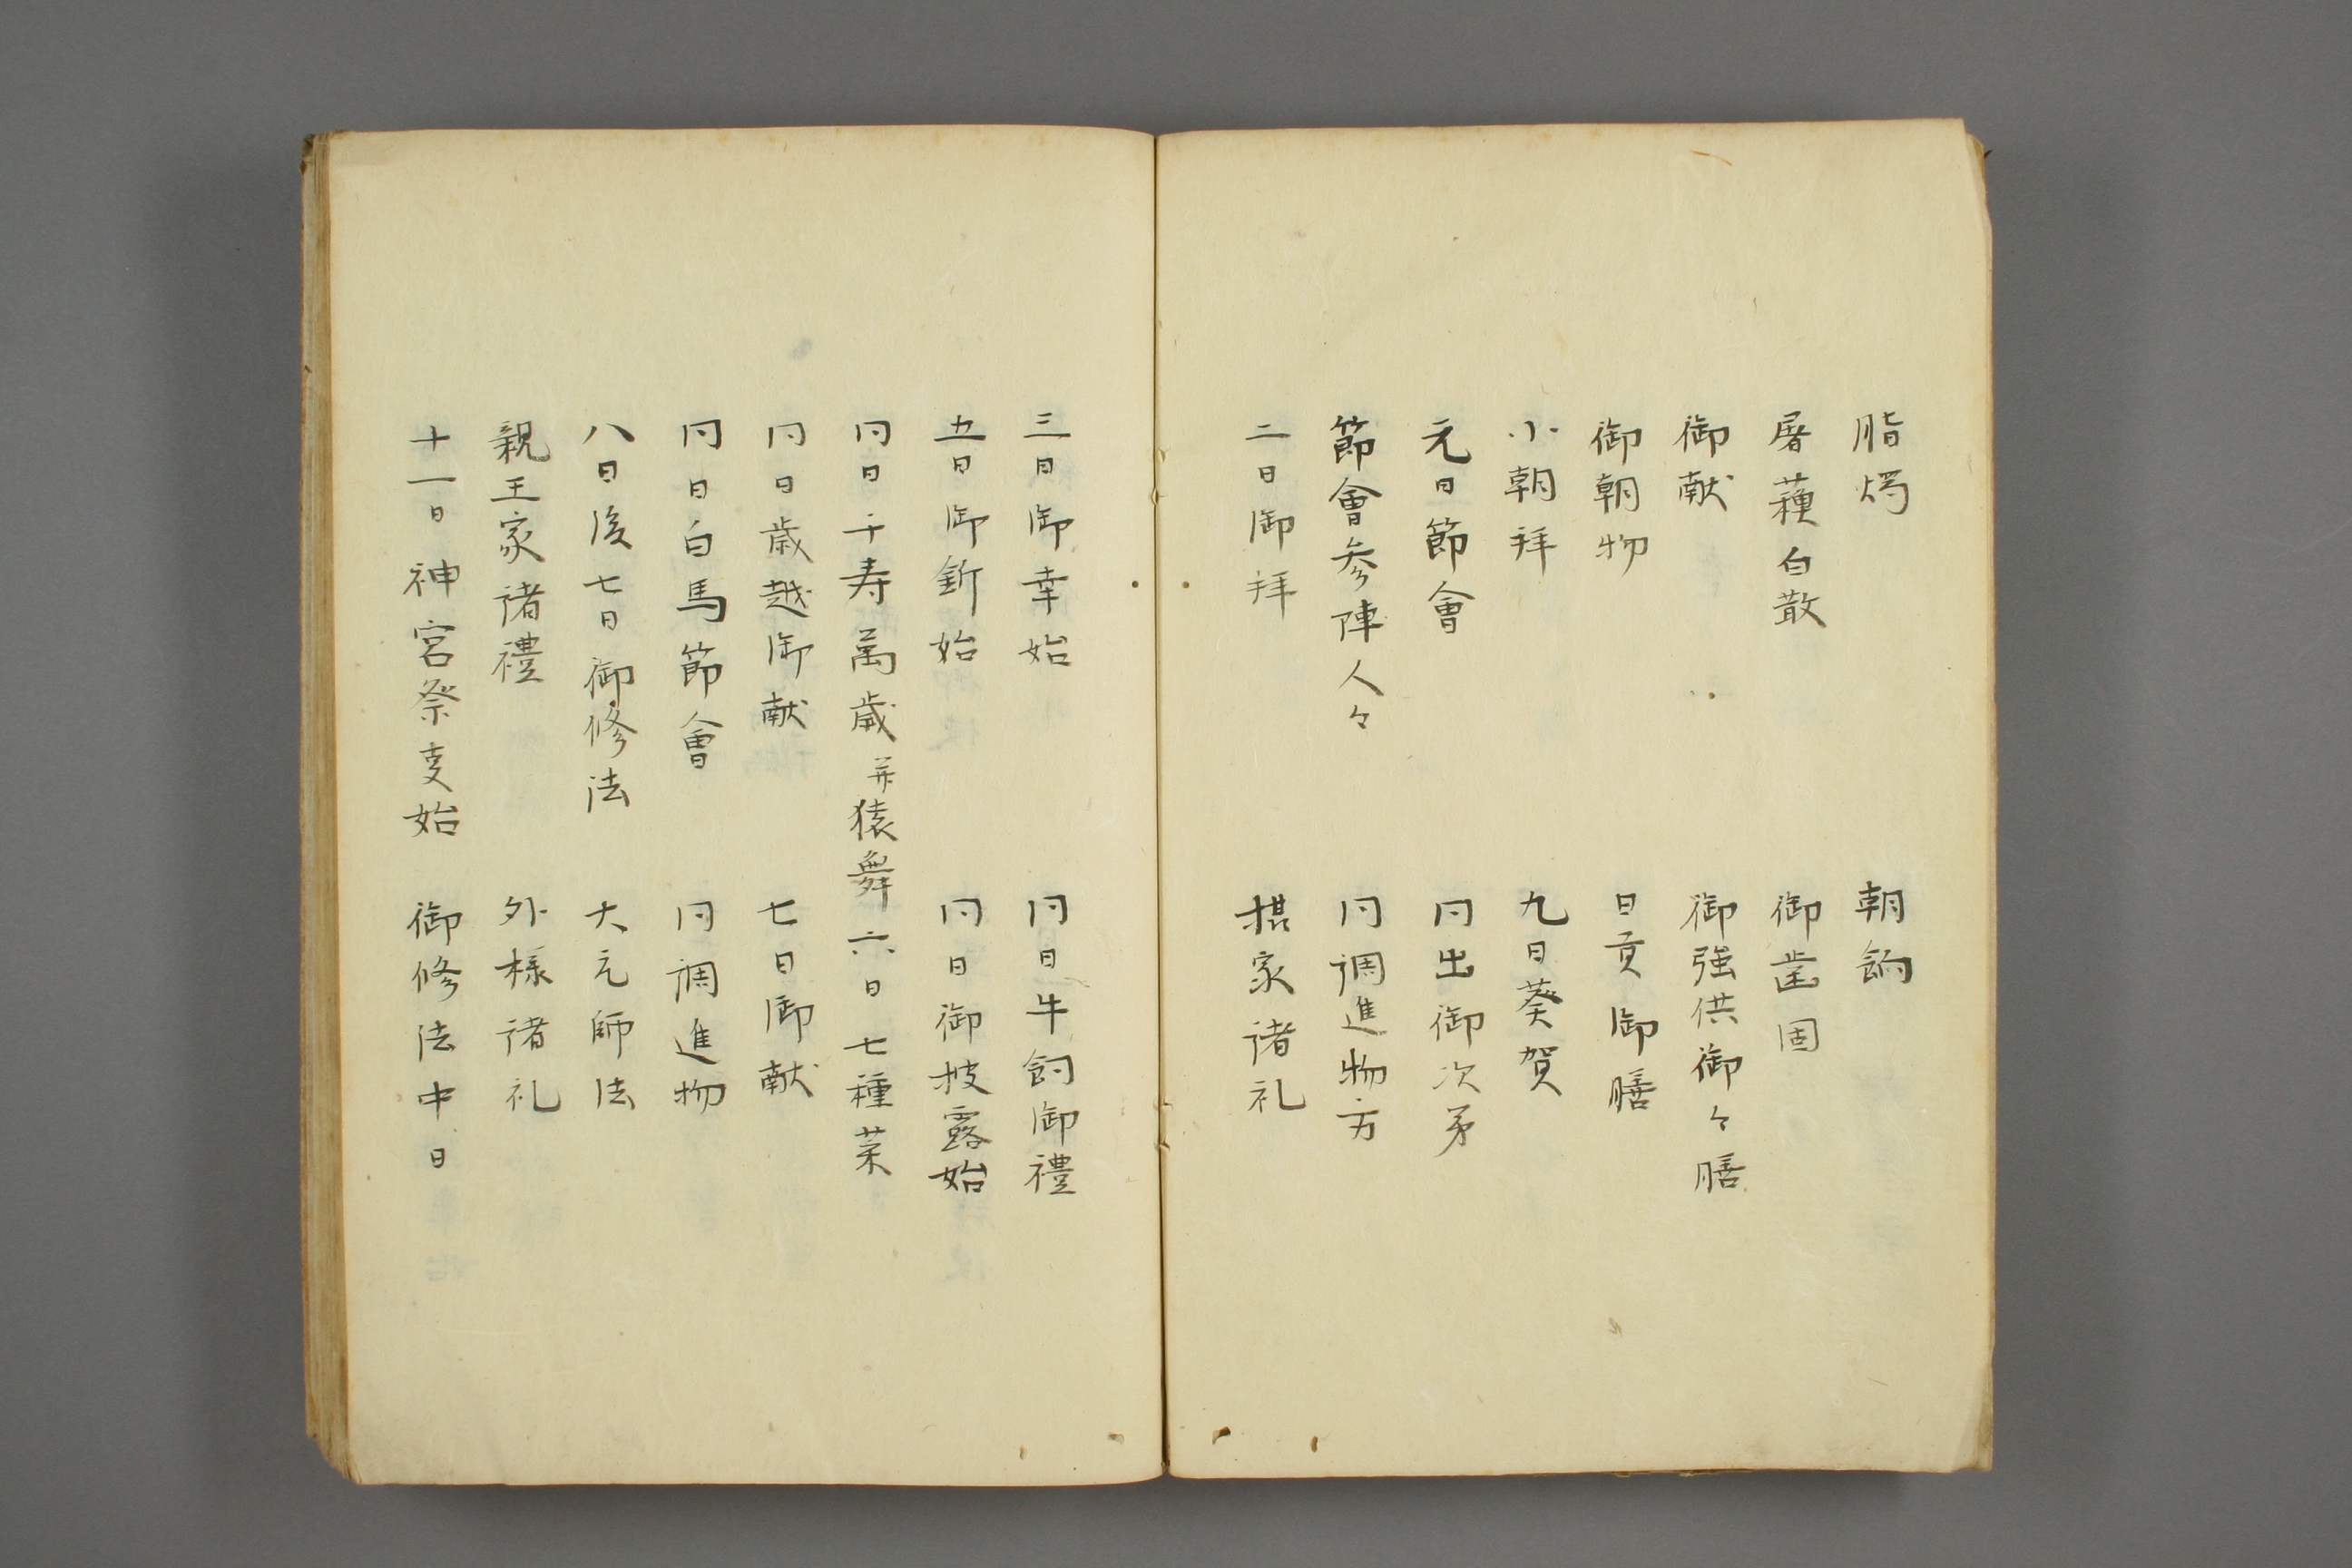 脂燭　朝餉
屠蘓白散　御歯固
御献　御強供御々膳
御朝物　日貢御膳
小朝拜　九日葵賀
元日節會　同出御次第
節會参陣人々　同調進物方
二日御拜　摂家諸礼
三日御幸始　同日牛飼御禮
五日御釿始　同日御披露始
同日千寿萬歳并猿舞　六日七種菜
同日歳越御献　七日御献
同日白馬節會　同調進物
八日後七日御修法　大元師法
親王家諸禮　外様諸礼
十一日神宮祭叓始　御修法中日